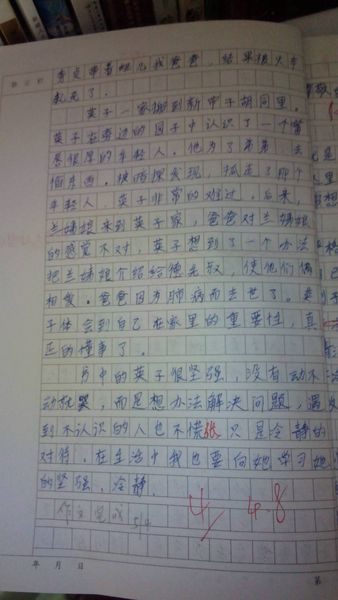 秀贞带着妞儿找爸爸,结果被火车
轧死了。
英子一家搬到新帘子胡同里。
英子在旁边的园子中认识了一个嘴
唇很厚的年轻人。他为了弟弟,去
偷东西。被暗探发现,抓走了那个
年轻人,英子非常的难过。后来,
兰姨娘来到英子家,爸爸对兰姨娘
的感觉不对,英子想到了一个办法
把兰姨娘介绍给德先叔,使他们俩
相爱。爸爸因为肺病而去世了。英
子体会到自己在家里的重要性,真
正的懂事了。
书中的英子很坚强,没有动不
动就哭,而是想办法解决问题,遇
到不认识的人也不慌张只是冷静的
对待。在生活中我也要向她学习她
的坚强、冷静。
作文完成 5/4
4.8
年 月 日
第